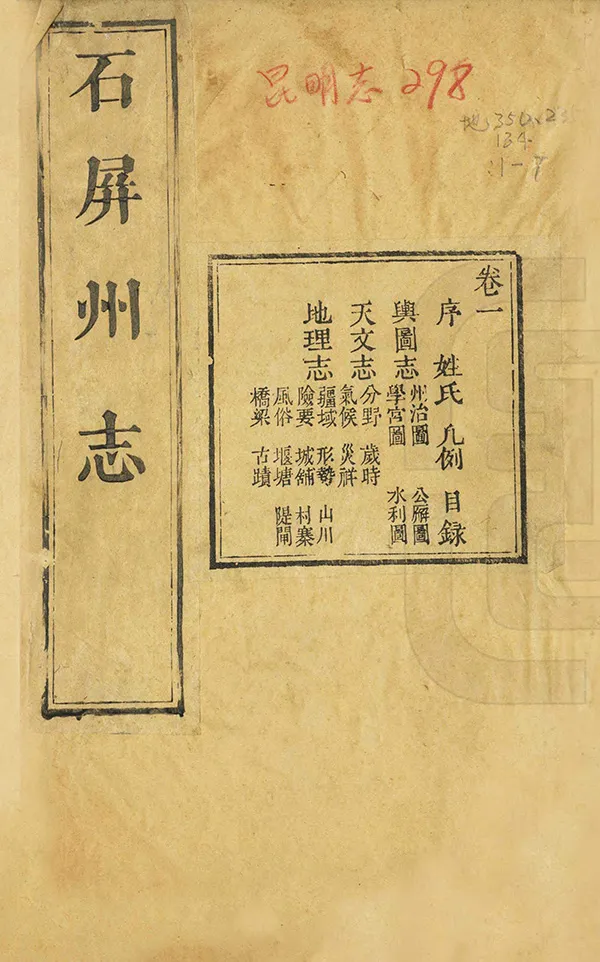 石屏州志
昆明志298
卷一
序 姓氏 凡例 目録
輿圖志 州治圖 公廨圖
學宮圖 水利圖
天文志 分野 歲時
氣候 災祥
地理志 疆域 形勢 山川
險要 城舖 村寨
風俗 堰塘 隄閘
橋梁 古蹟
134